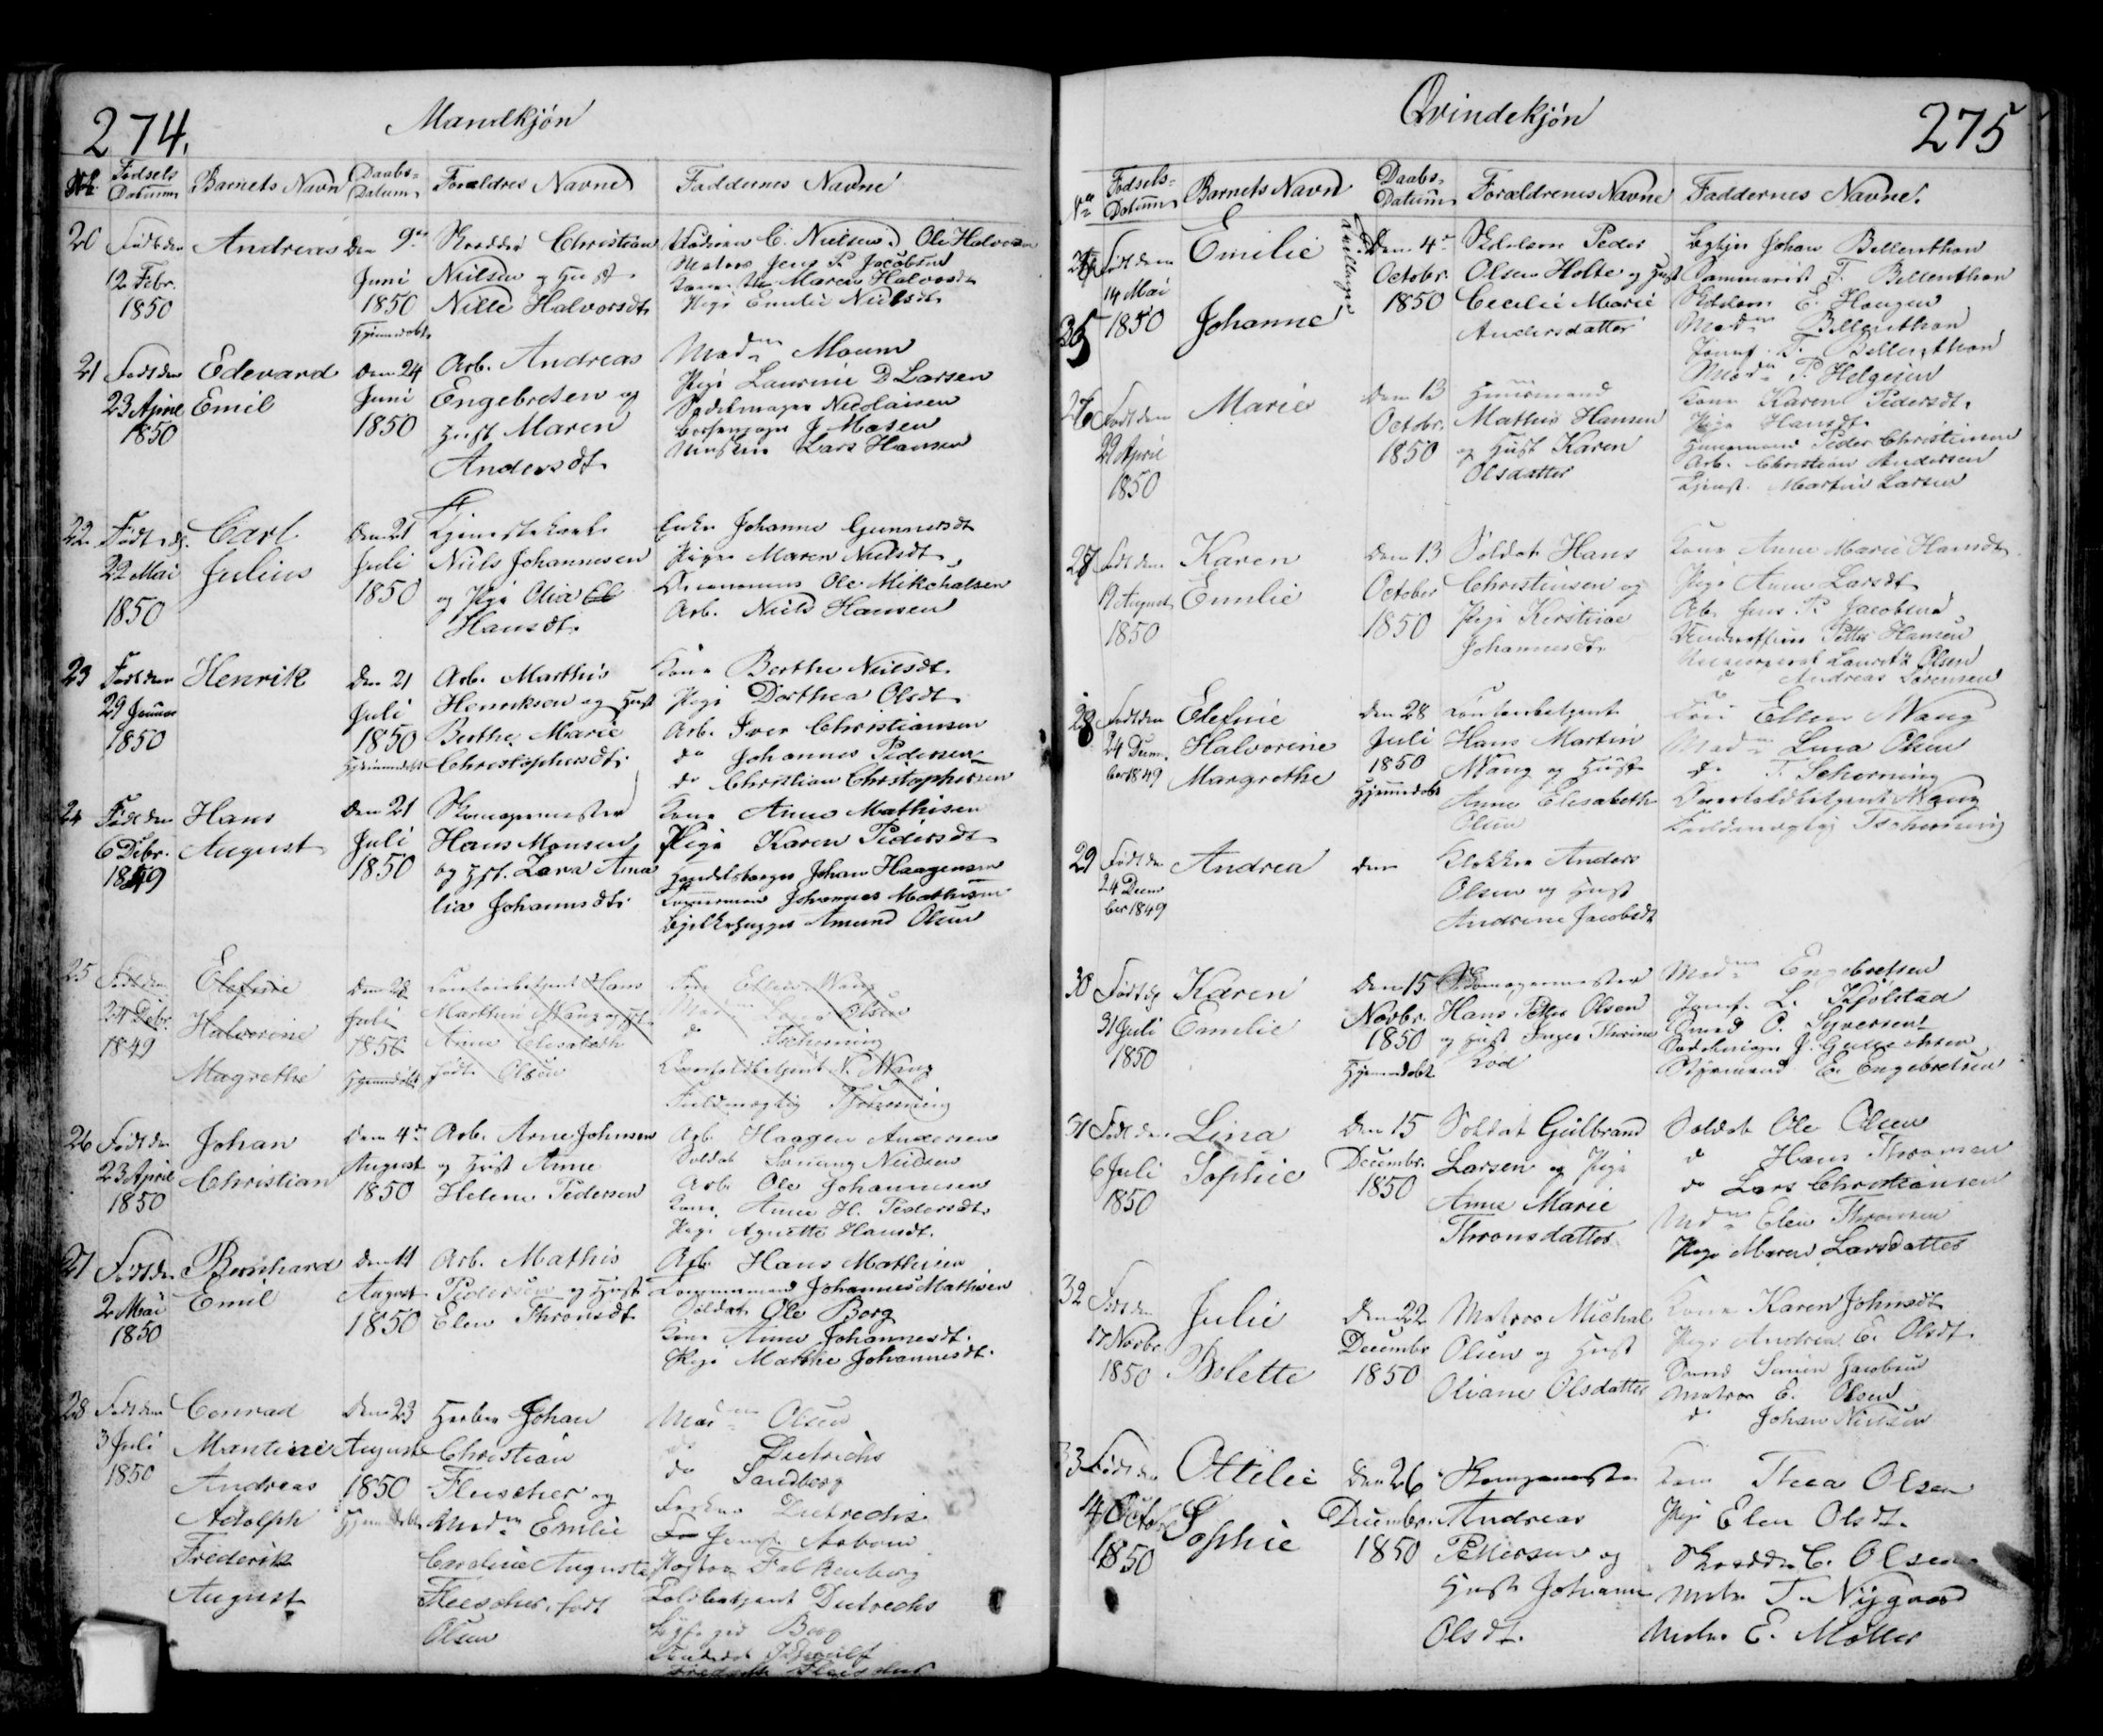 274.
Mandkjön
No. Fødsels Datum Barnets Navn Daabs-Datum Foraldres Navne Faddernes Navne
20 Født den 12 Febr. 1850
Andreas
den 9de Juni 1850 Hjemmedøbt
Skrædder Christian
Nielsen og Hust
Nille Halvorsdt.
C. Nielsen. Ole Halvorsen
Matros Jens P. Jacobsen
Kone Maren Halvorsdt
Pige Emilie Nielsdt.
21 Født den 23 April 1850
Edevard
Emil
den 24 Juni 1850
Arb. Andreas
Engebretsen og
Hust Maren
Andersdt.
Madm Moum
Pige Laurine D Larsen
Sadelmager Nicolaisen
J. Mosen
Lars Hansen
22 Født d. 22 Mai 1850
Carl
Julius
den 21 Juli 1850
Tjenestekarl
Niels Johannesen
og Pige Olia
Hansdt.
Enke Johanne Gunnersdt
Pige Maren Nielsdt
Ole Mikchalsen
Arb. Niels Hansen
23 Født den 29 Januar 1850
Henrik
den 21 Juli 1850 Hjemmedøbt
Arb. Marthis
Henriksen og Hust
Berthe Marie
Christophersdt.
Kone Berthe Nielsdt.
Pige Dorthea Olsdt
Arb. Iver Christiansen
do Johannes Pedersen
do Christian Christophersen
24 Født den 6 Debr. 1849
Hans
August
den 21 Juli 1850
Skomagermester
Hans Monsen
og Hst. Lara Ama
lia Johannsdt.
Kone Anne Mathisen
Pige Karen Pedersdt
Handelsborger Johan Haagensen
Johannes Mathisen
Bjelkehugger Amund Olsen
25 Født den 24 Debr. 1849
Elefine
Halvorine
Magrethe
den 28 Juli 1850 Hjemmedøbt
Toldbetjent Hans
Marthin Wang og Hst.
Anne Elisabeth
født Olsen
Fru Ellen Wang
Madm Lina Olsen
do Tscherning
Overtoldbetjent N. Wang
Fuldmægtig Tscherning
26 Født den 23 April 1850
Johan
Christian
den 4de August 1850
Arb. Arne Johnsen
og Hust Anne
Helene Pedersen
Arb. Haagen Andersen
Soldat Nielsen
Arb. Ole Johannesen
Kone Anne H. Pedersdt.
Pige Agnette Hansdt.
27 Født den 2 Mai 1850
Bernhard
Emil
den 11 August 1850
Arb. Mathis
Pedersen og Hust
Elen Thronsdt
Arb. Hans Mathisen
Johannes Mathisen
Soldat Ole Borg
Kone Anne Johannesdt.
Pige Marthe Johannesdt.
28 Født den 3 Juli 1850
Conrad
Mantinei
Andreas
Adolph
Frederik
August
den 23 August 1850 Hjemmedøbt
Johan
Christian
Fleischer og
Madm Emilie
Caroline Augusta
Fleischer, født
Olsen
Madm Olsen
do Dietrichs
do Sandberg
Dietrechs
Jomf. Asbom
Falkenberg
Toldbetjent Dietrechs
Borg
Fleischer
Qvindekjön
275
No Fødsels-Datum Barnets Navn Daabs-Datum Forældrenes Navne Faddernes Navne.
35 Født den 14 Mai 1850
Emilie
Johanne
Den 4de Octobr. 1850
Skibsfører Peder
Olsen Holte og Hust
Cecilie Marie
Andersdatter
Johan Bellenthon
F. Bellenthon
E. Haugen
Madm Bellenthon
Jomf. T. Bellenthon
Madm P. Helgesen
26 Født den 22 April 1850
Marie
den 13 Octobr. 1850
Huusmand
Mathis Hansen
og Hust Karen
Olsdatter
Kone Karen Pedersdt.
Pige Hansdt
Huusmand Peder Christiansen
Arb. Christian Andersen
Martin Larsen
27 Født den 19 August 1850
Karen
Emilie
den 13 October 1850
Soldat Hans
Christiansen og
Pige Kerstine
Johannesdt.
Kone Anne Marie Hansdt.
Pige Anne Larsdt
Arb. Jens P. Jacobsen
Petter Hansen
Lauritz Olsen
do Andreas Sørensen
28 Født den 24 Decem- ber 1849
Elefine
Halvorine
Margrethe
den 28 Juli 1850 Hjemmedøbt
Toldbetjent
Hans Martin
Wang og Hust
Anne Elisabeth
Olsen
Fru Ellen Wang
Madm Lina Olsen
do T. Scherning
Overtoldbetjent Wang
Fuldmægtig Tscherning
29 Født den 24 Decem ber 1849
Andrea
den
Klokker Anders
Olsen og Hust
Andrine Jacobsdt
30 Født d. 31 Juli 1850
Karen
Emilie
Den 15 Novbr. 1850 Hjemmedøbt
Skomagermester
Hans Petter Olsen
og Hust Inger Thorine
Rød
Madm Engebretsen
Jomf. L. Kjolstad
Smed O. Syversen
Sadelmager J. Gulbrandsen
Styrmand E. Engebretsen
31 Født den 6 Juli 1850
Lina
Sophie
Den 15 Decembr. 1850
Soldat Gulbrand
Larsen og Pige
Anne Marie
Thronsdatter
Soldat Ole Olsen
do Hans Thronsen
do Lars Christiansen
Madm Elen Thronsen
Pige Maren Larsdatter
32 Født den 17 Novbr. 1850
Julie
Bolette
den 22 Decembr 1850
Matros Michal
Olsen og Hust
Oliane Olsdatter
Kone Karen Johnsdt
Pige Andrea E. Olsdt.
Simen Jacobsen
Matros E. Olsen
do Johan Nielsen
33 Født den 4 Octobr 1850
Ottilie
Sophie
Den 26 Decembr. 1850
Skomagermester
Andreas
Pettersen og
Hust Johanne
Olsdt.
Kone Thea Olsen
Pige Elen Olsdt.
Skrædder C. Olsen
Matr. T. Nygaard
Matr. E. Møller